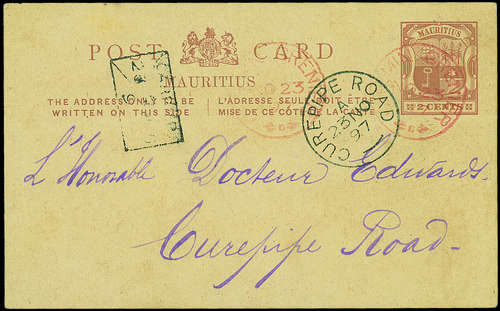 POST CARD
MAURITIUS
MAURITIUS
2 CENTS
THE ADDRESS ONLY TO BE L'ADRESSE SEULE DOIT ÊTRE
WRITTEN ON THIS SIDE MISE DE CE CÔTÉ DE LA CARTE
CUREPIPE ROAD
A
23 NO
97
23
L'Honorable Docteur Edwards.
Curepipe Road-